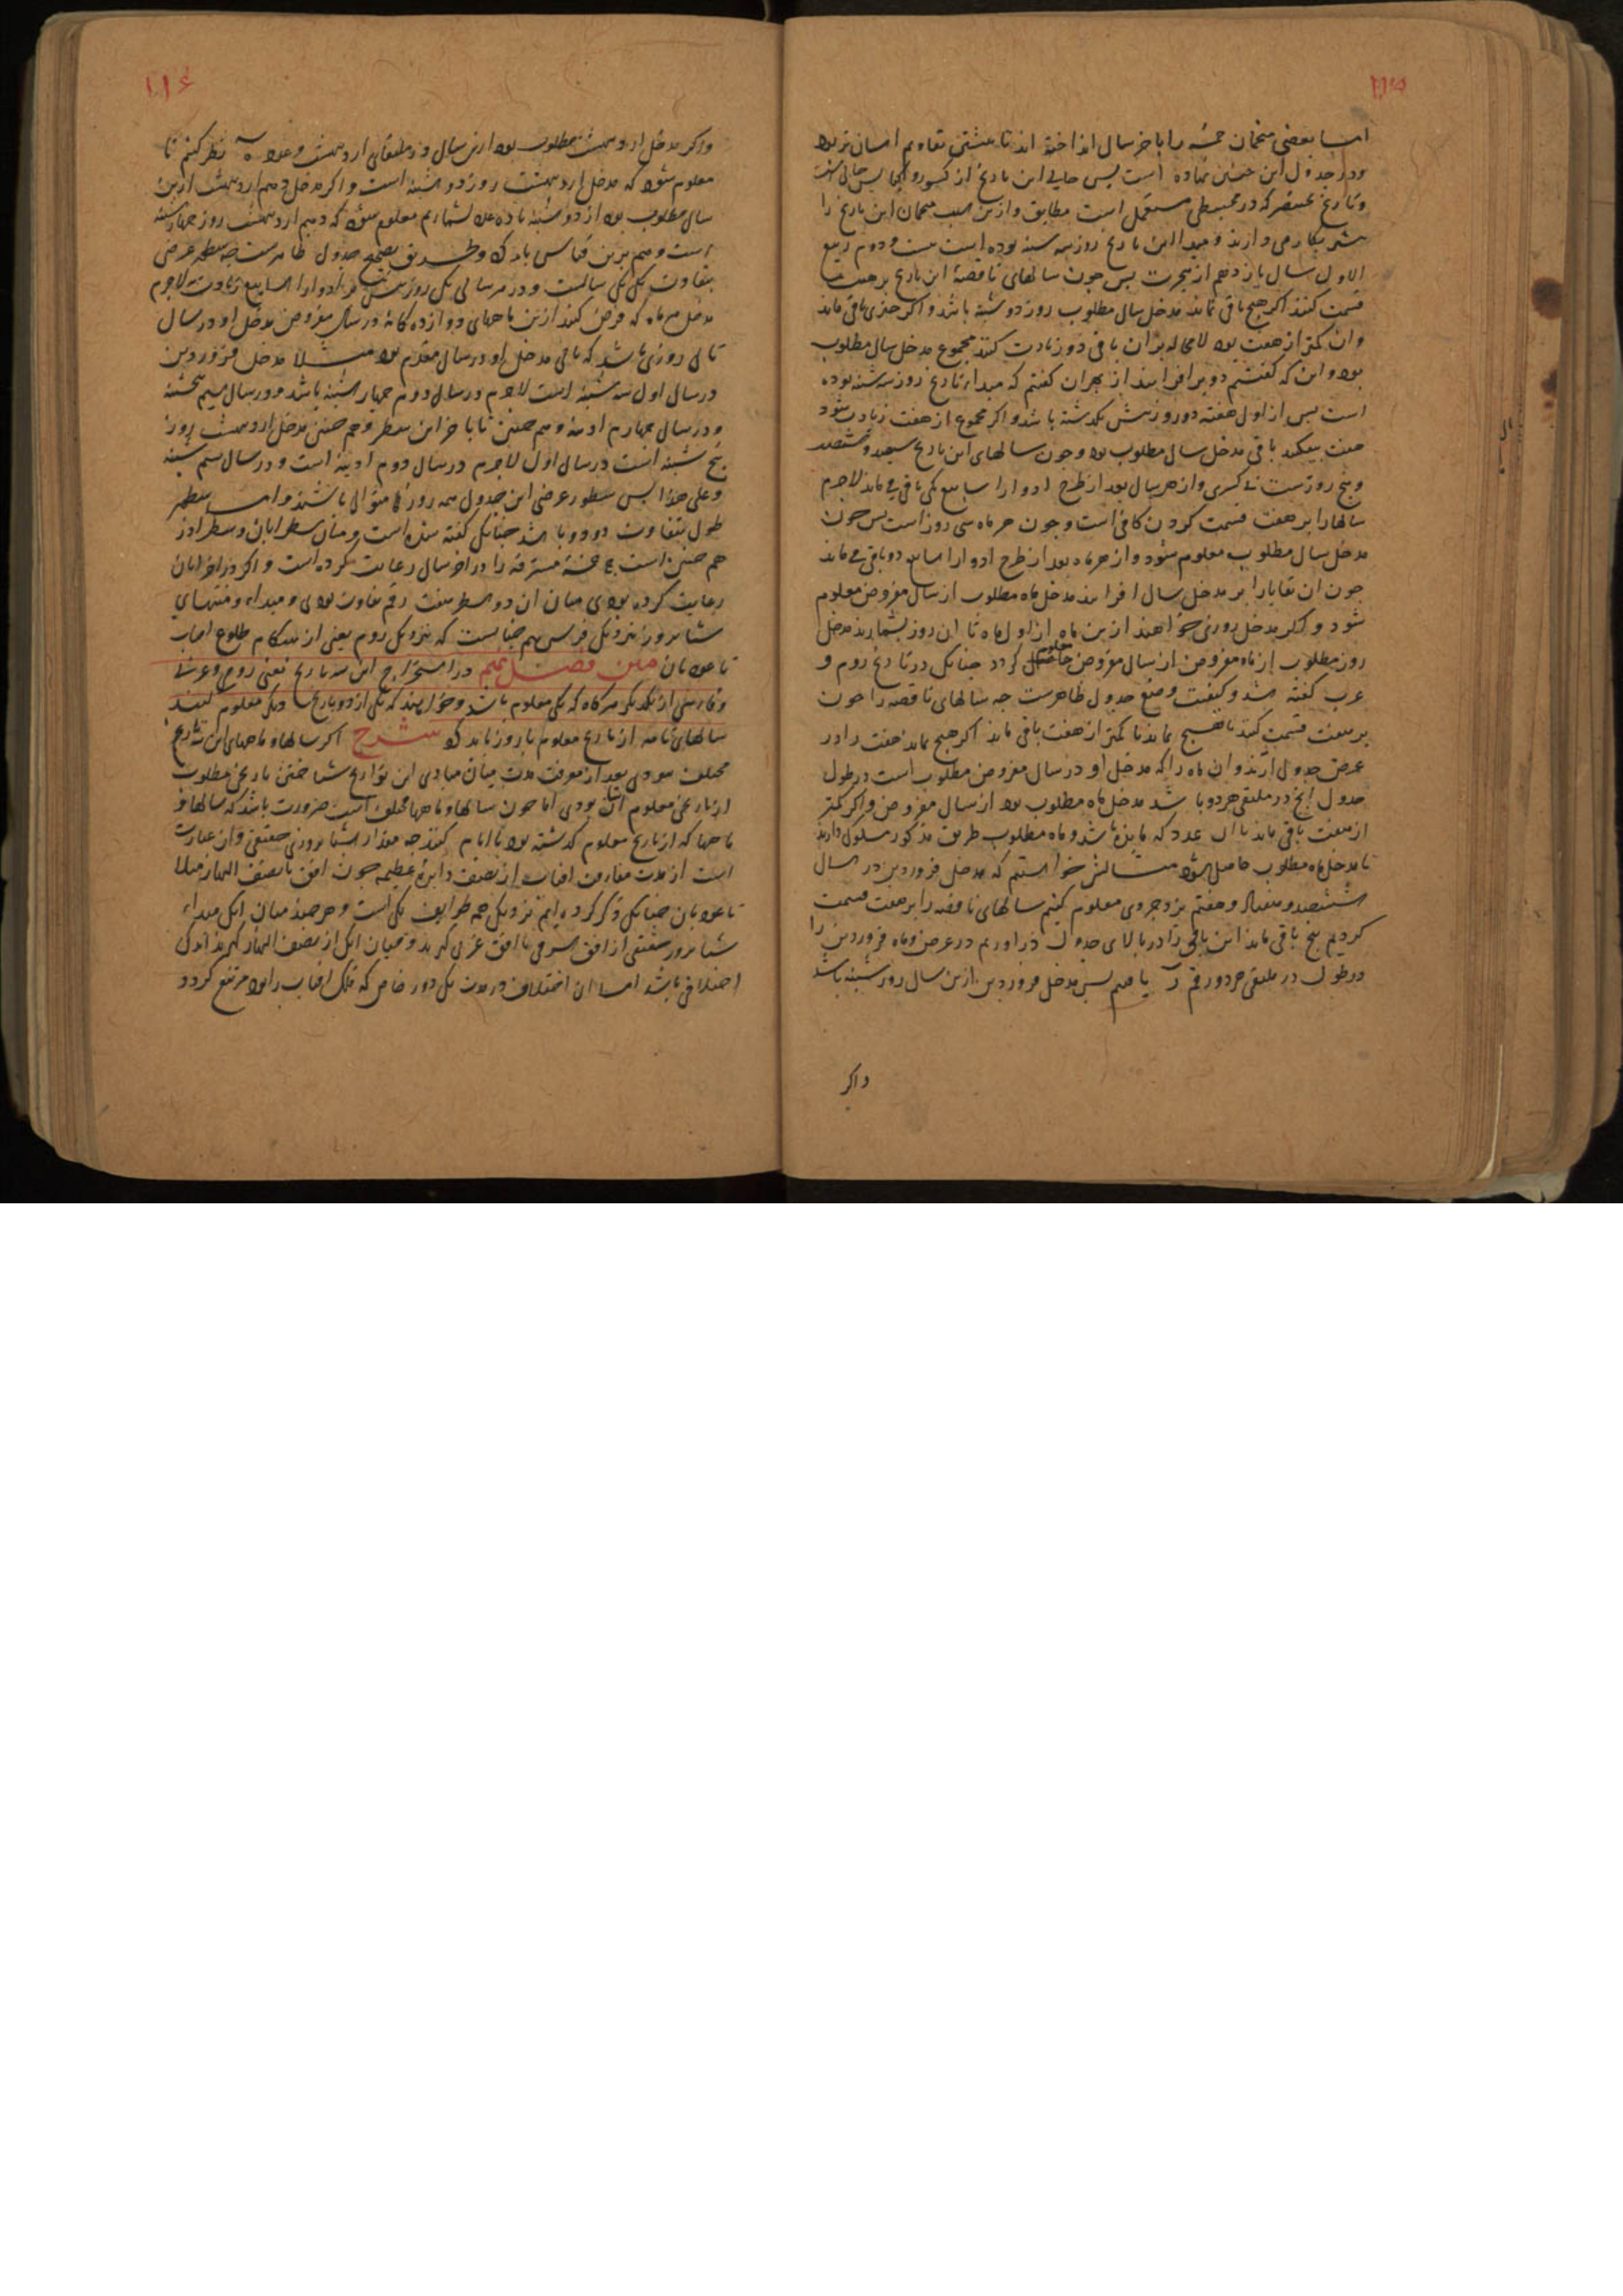 ۱۱۵
اما بعضی منجمان خمسه را باخر سال انداخته اند تا مشتی تقاویم اسان تر بود
ودر جدول این چنین نهاده است پس حالی این تاریخ از کبس و
وتاریخ بختنصر که در مجسطی مستعمل است مطابق وازین سبب منجمان این تاریخ را
بیشتر بکار می دارند ومبدا این تاریخ روز سه شنبه بوده است بیست و دوم ربیع
الاول سال یازدهم از هجرت پس چون سالهای ناقصهٔ این تاریخ بر هفت
قسمت کنند اکر هیچ باقی نماند مدخل سال مطلوب روز دوشنبه باشد و اکر چیزی باقی ماند
وان کمتر از هفت بود لامحاله بران باقی دو زیادت کنند مجموع مدخل سال مطلوب
بود و این که کفتیم دو بر افزایند از بهر ان کفتم که مبداء تاریخ روز سه شنبه بوده
است پس از اول هفته دو روز پیش نکذشته باشد و اکر مجموع از هفت زیادت شود
هفت بیفکند باقی مدخل سال مطلوب بود و چون سالهای این تاریخ سیصد و شصت
وپنج روزست بی کسری واز هر سال بعد از طرح ادوار اسابیع یکی باقی می ماند لاجرم
سالها را بر هفت قسمت کردن کافی است و چون هر ماه سی روز است پس چون
مدخل سال مطلوب معلوم شود و از هر ماه بعد از طرح ادوار اسابیع دو باقی می ماند
چون ان بقایا را بر مدخل سال افزایند مدخل ماه مطلوب از سال مفروض معلوم
شود و اکر مدخل روزی خواهند ازین ماه از اول ماه تا ان روز بشمارند مدخل
روز مطلوب از ماه مفروض از سال مفروض حاصل کردد چنانک در تاریخ روم و
عرب کفته شد و کیفیت وضع جدول ظاهرست چه سالهای ناقصه را چون
بر هفت قسمت کنند تا هیچ نماند یا کمتر از هفت باقی ماند اکر هیچ نماند هفت را در
عرض جدول ارند وان ماه را که مدخل او در سال مفروض مطلوب است در طول
جدول انچ در ملتقی هر دو باشد مدخل ماه مطلوب بود از سال مفروض و اکر کمتر
از هفت باقی ماند با ان عدد که مانده باشد و ماه مطلوب طریق مذکور مسلوک دارند
تا مدخل ماه مطلوب حاصل شود مثالش خواستیم که مدخل فروردین در سال
ششصد و هفتاد و هفتم یزدجردی معلوم کنیم سالهای ناقصه را بر هفت قسمت
کردیم پنج باقی ماند این باقی را در بالای جدول در اوردیم در عرض و ماه فروردین را
در طول در ملتقی هر دو رقم یافتیم پس مدخل فروردین ازین سال روز شنبه باشد
واکر
۱۱۶
واکر مدخل اردیبهشت مطلوب بود ازین سال در ملتقای اردیبهشت وعدد ه نظر کنیم تا
معلوم شود که مدخل اردیبهشت روز دوشنبه است واکر مدخل دهم اردیبهشت ازین
سال مطلوب بود از دوشنبه تا ده عدد بشماریم معلوم شود که دهم اردیبهشت روز چهارشنبه
است و هم برین قیاس باید کرد وطریق تصحیح جدول ظاهرست چه سطور عرضی
بتفاوت یکی یکی سالهاست و در هر سالی یک روز بیش بر ادوار اسابیع زیادت لاجرم
مدخل هر ماه که فرض کنند ازین ماههای دوازده کانه در سال مفروض مدخل او در سال
تالی روزی باشد که تالی مدخل او در سال مقدم بود مثلا مدخل فروردین
در سال اول سه شنبه است لاجرم در سال دوم چهارشنبه باشد ودر سال سیم پنجشنبه
ودر سال چهارم ادینه وهم چنین تا باخر این سطر وهم چنین مدخل اردیبهشت روز
پنج شنبه است در سال اول لاجرم در سال دوم ادینه است و در سال سیم شنبه
وعلی هذا پس سطور عرضی این جدول همه روزها متوالی باشند واما سطور
طول بتفاوت دو دو باشد چنانک کفته شده است ومیان سطر ابان وسطر اذر
هم چنین است چه خمسه مسترقه را در اخر سال رعایت کرده است واکر در اخر ابان
رعایت کرده بودی میان ان دو سطر هفت رقم تفاوت بودی ومبداء ومنتهای
شبانروز نزدیک فرس هم چنانست که نزدیک روم یعنی از هنکام طلوع افتاب
تا عود بان متن فصل نهم در استخراج این سه تاریخ یعنی روم وعرب
وفارسی از یکدیکر هرکاه که یکی معلوم باشد وخواهند که یکی از دو تاریخ دیکر معلوم کنند
سالهای تامه از تاریخ معلوم با روز باید کرد شرح اکر سالها وماههای این سه تاریخ
مختلف نبودی بعد از معرفت مدت میان مبادی این تواریخ شناختن تاریخی مطلوب
از تاریخی معلوم اسان بودی اما چون سالها وماهها مختلف است ضرورت باشد که سالها و
ماهها که از تاریخ معلوم کذشته بود با ایام کنند چه مقدار شبانروزی حقیقی وان عبارت
است از مدت مفارقت افتاب از نصف دایرهٔ عظیمه چون افق یا نصف النهار مثلا
تا عود بان چنانک ذکر کرده ایم نزدیک همه طوایف یکی است وهرچند میان انک مبداء
شبانروز حقیقی از افق شرقی یا افق غربی کیرند ومیان انک از نصف النهار کیرند اندک
اختلافی باشد اما ان اختلاف در مدت یک دور خاص که فلک افتاب را بود مرتفع کردد